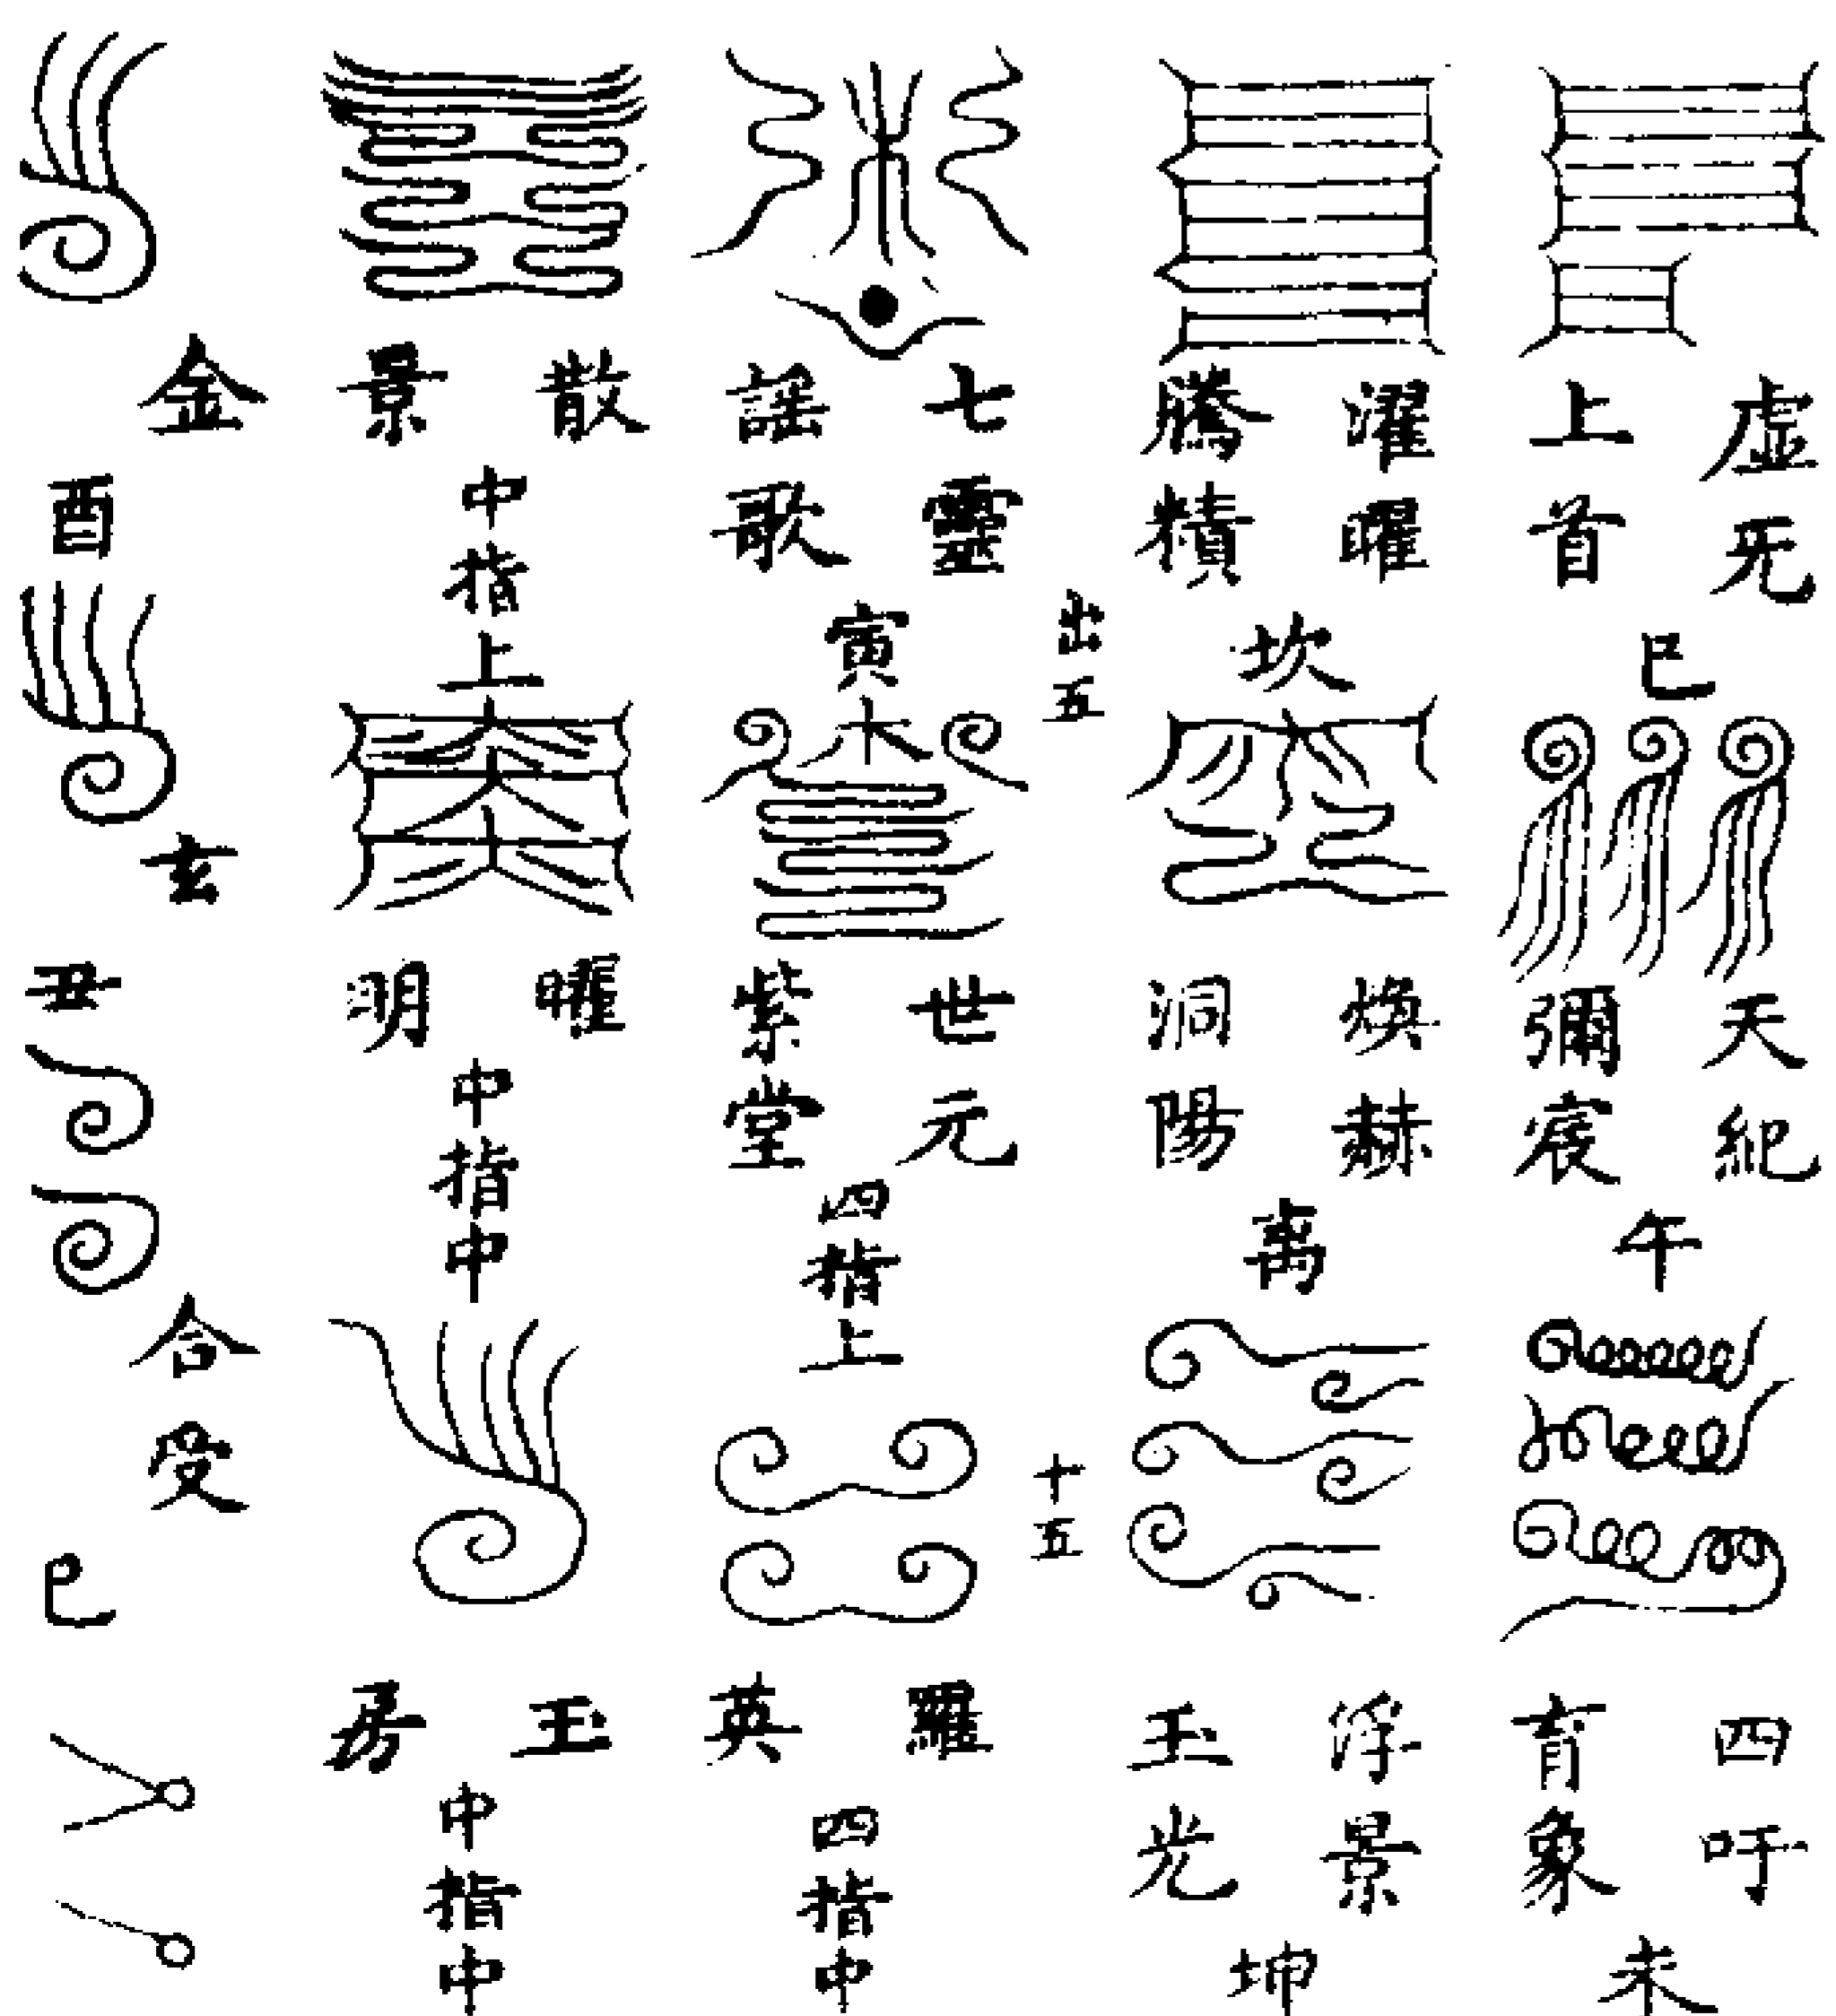 虛无上首
巳
天紀彌宸
午
四吁育象
未
濯曜騰積
坎
煥赫洞陽
离
浮景玉光
坤
出五
十五
七靈謡歌
寅
世元紫堂
四指上
羅英
四指中
散景
中指上
曜明
中指中
玉房
中指中
金
酉
玄
丑
合受
巳